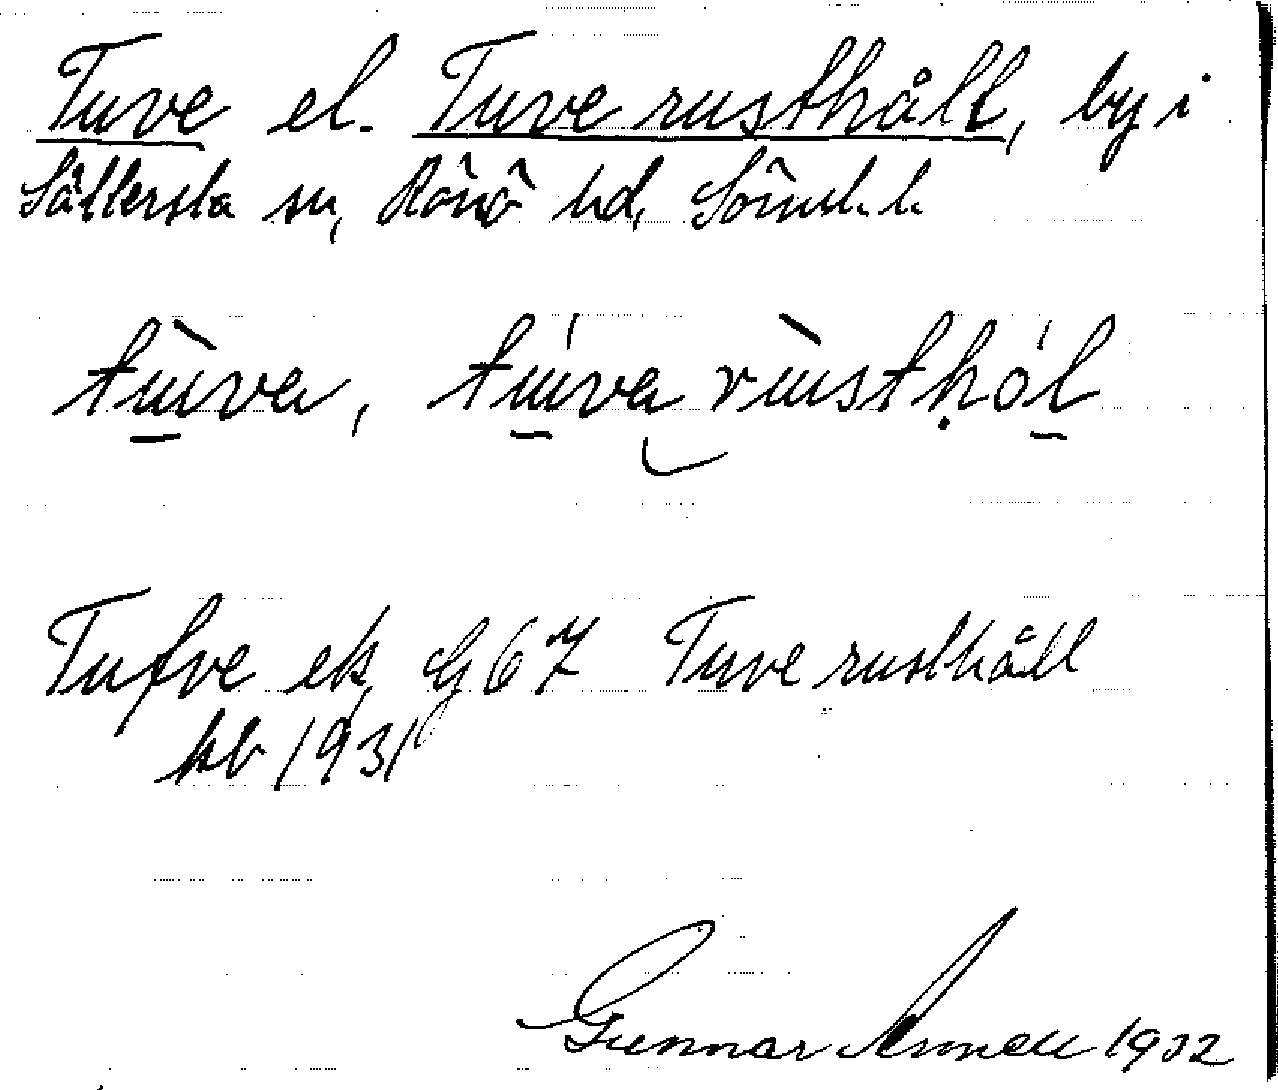 Tuve el. Tuve rusthåll, by i
Sättersta sn, Rönö hd, Sörml. l.
tùva, túva rùsthól
Tufve ek G 67 Tuve rusthåll
kb 1931
Gunnar 1932